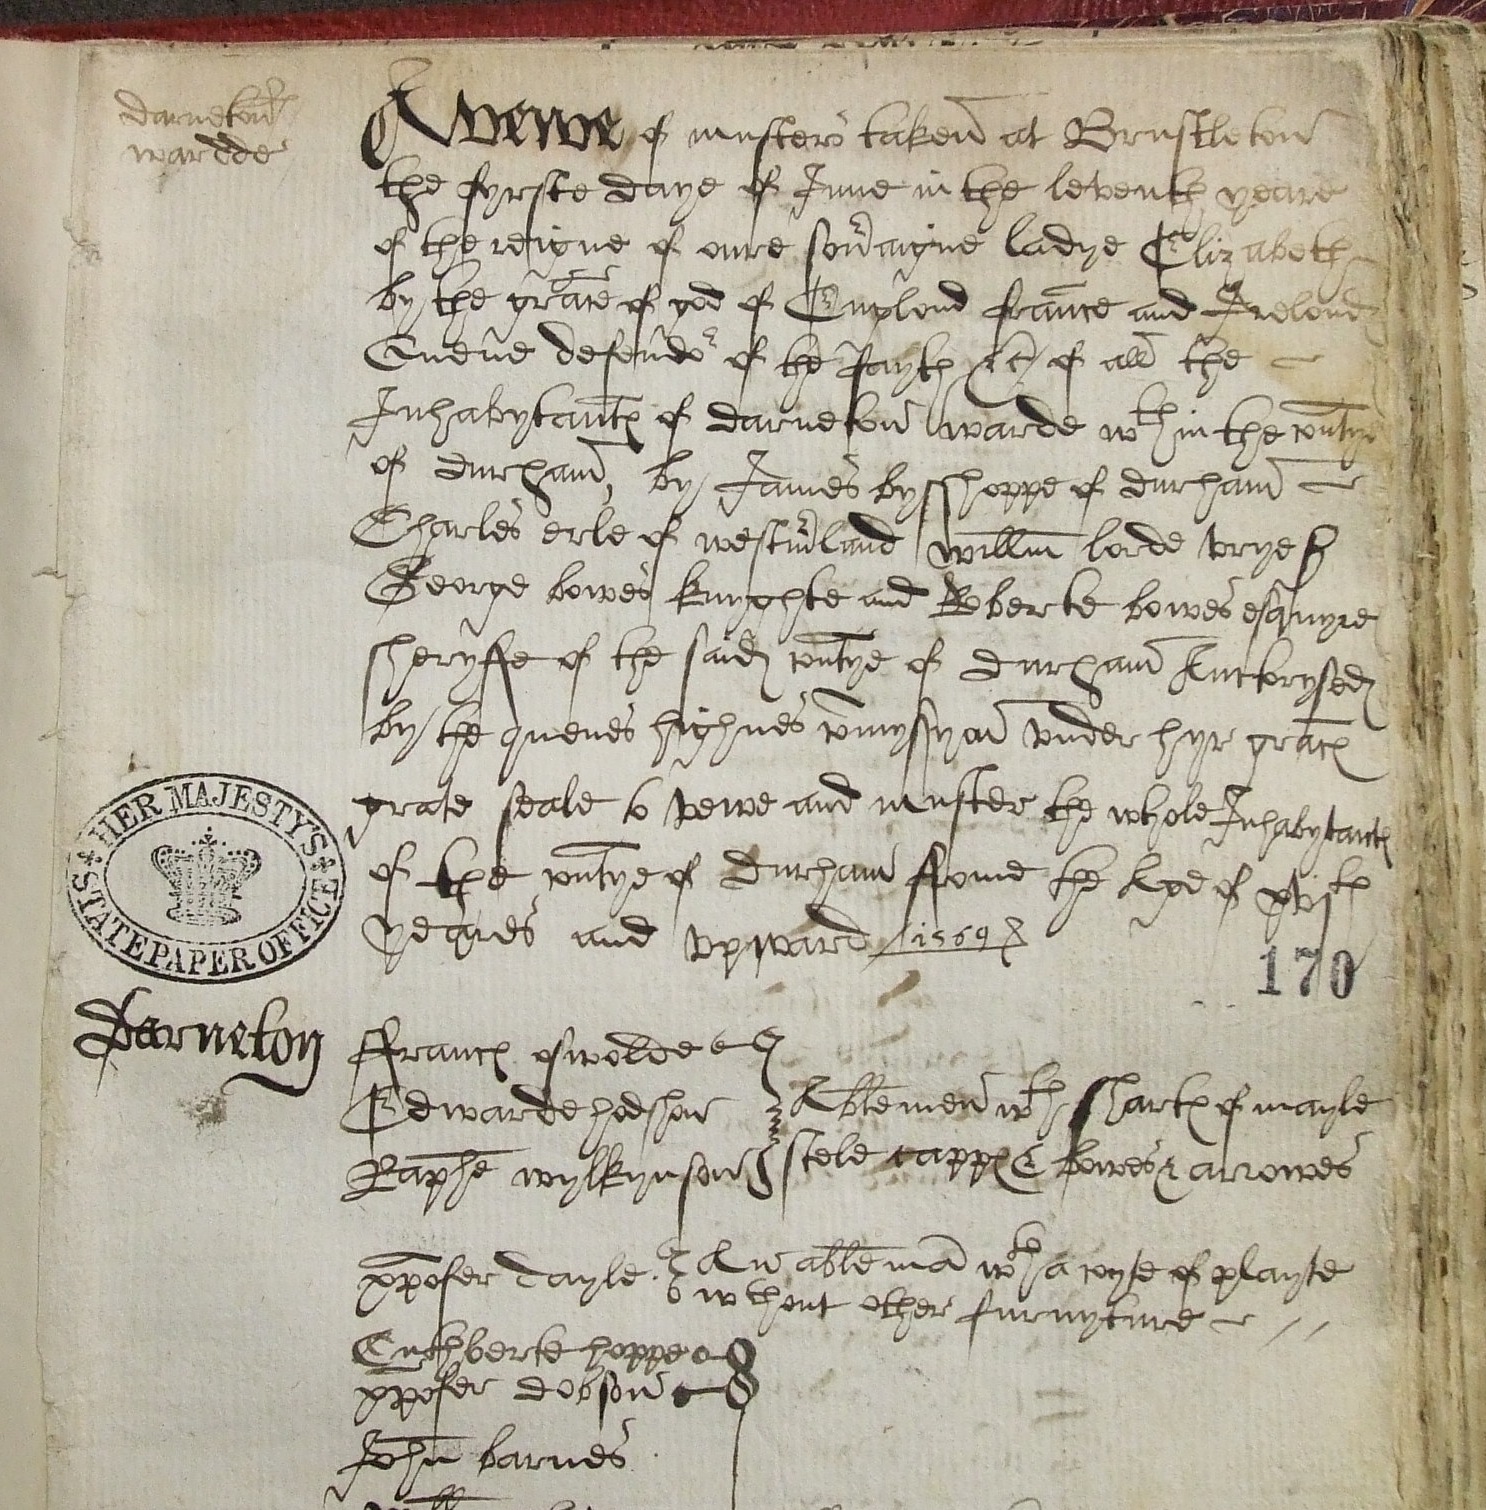 darneton
wardde
A vewe of musters taken at Brustleton
the fyrste daye of June in the leventh yeare
of the reigne of oure sov'aigne ladye Elizabeth
by the grace of god of Englond france and Irelond
Quene defendor of the fayth &c of all the
Inhabytantes of darneton warde wth in the contye
of durham, by James bysshoppe of durham
Charles erle of westm'land willm lorde vrye sr
George bowes knyghte and Roberte bowes esquyre
sheryffe of the said contye of durham Auctorysed
by the quenes highnes comyssyon vnder hyr graces
grate seale to vewe and muster the whole Inhabytantes
of the contye of durham frome the Age of xvjth
yeares and vpward / 1569
HER MAJESTY'S
STATE PAPER OFFICE
170
Darneton
ffrances oswolde
Edwarde hodshon Able men wth shartes of mayle
Raphe wylkynson stele cappes & bowes & arrowes
xpofer dayle An able man wth a cote of playte
wthout other furnyture
Cuthberte hoppe
xpofer dobson
John barnes